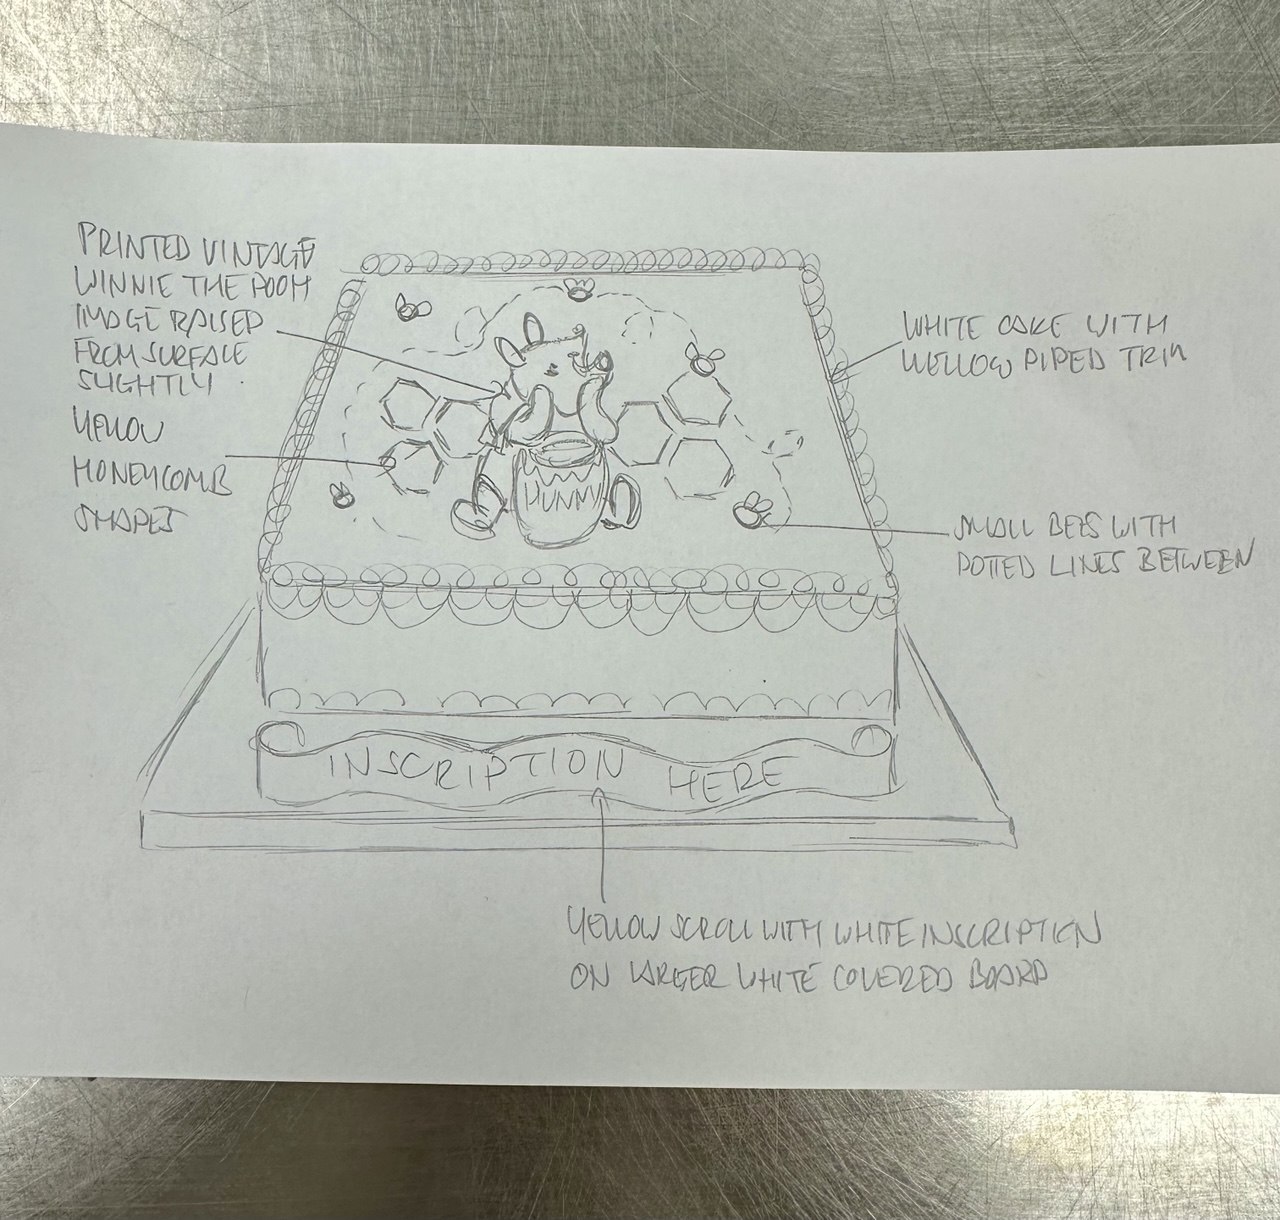 PRINTED VINTAGE
WINNIE THE POOH
IMAGE RAISED
FROM SURFACE
SLIGHTLY.
YELLOW
HONEYCOMB
SHAPES
WHITE CAKE WITH
YELLOW PIPED TRIM
SMALL BEES WITH
DOTTED LINES BETWEEN
HUNNY
INSCRIPTION HERE
YELLOW SCROLL WITH WHITE INSCRIPTION
ON LARGER WHITE COVERED BOARD